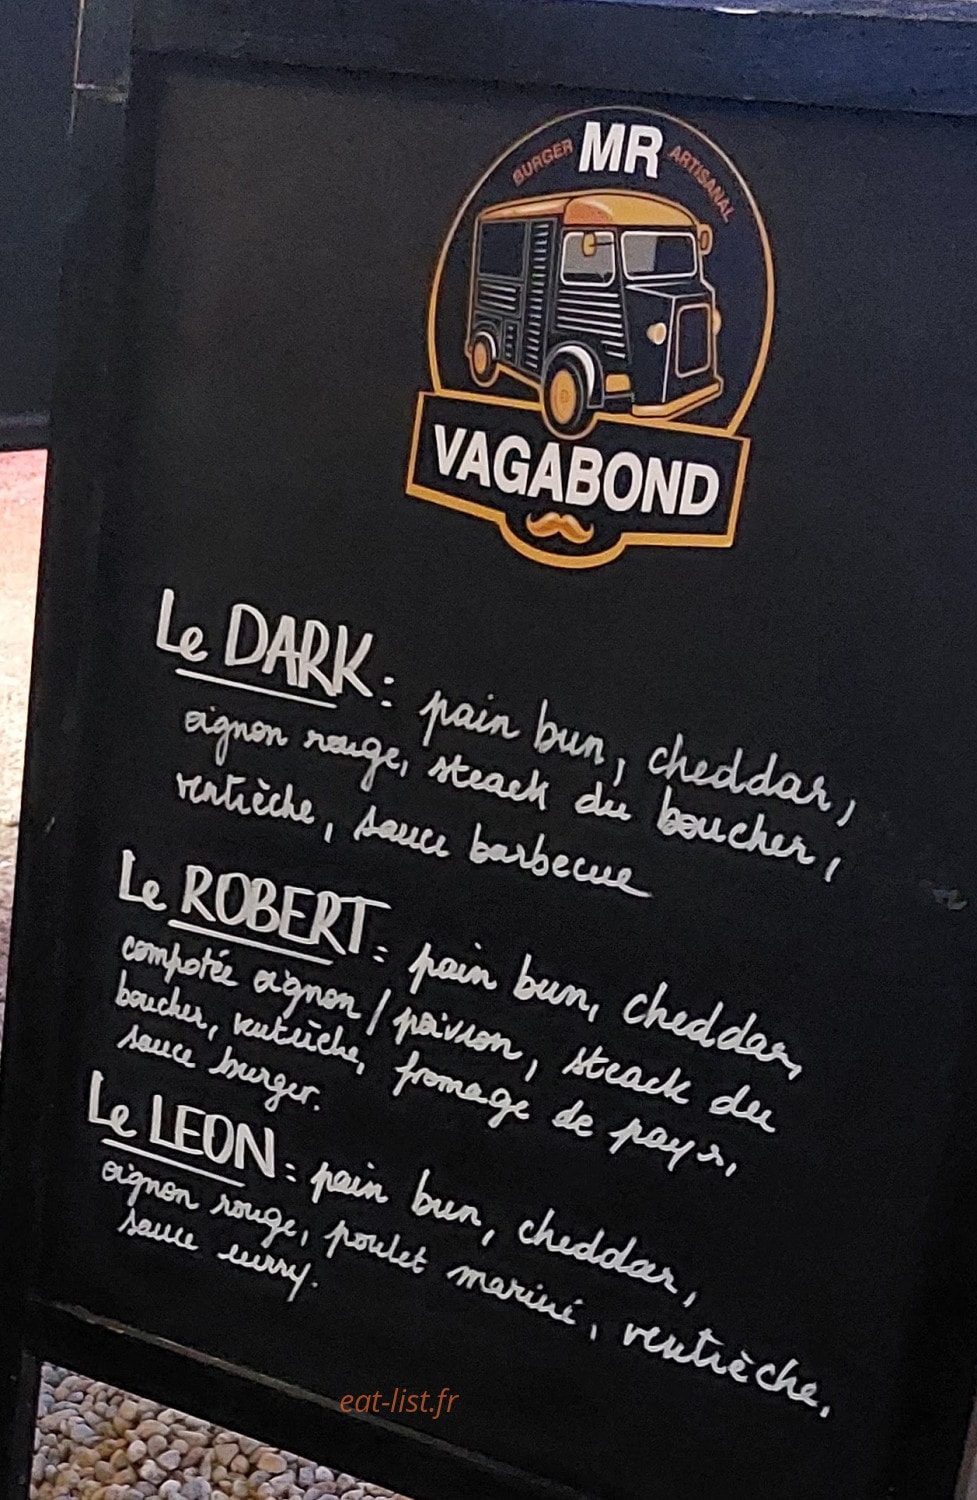 BURGER MR ARTISANAL
VAGABOND
Le DARK : pain bun, cheddar,
oignon rouge, steack du boucher,
ventrèche, sauce barbecue
Le ROBERT : pain bun, cheddar,
compotée oignon / poivron, steack du
boucher, ventrèche, fromage de pays,
sauce burger.
Le LEON : pain bun, cheddar,
oignon rouge, poulet mariné, ventrèche,
sauce curry.
eat-list.fr